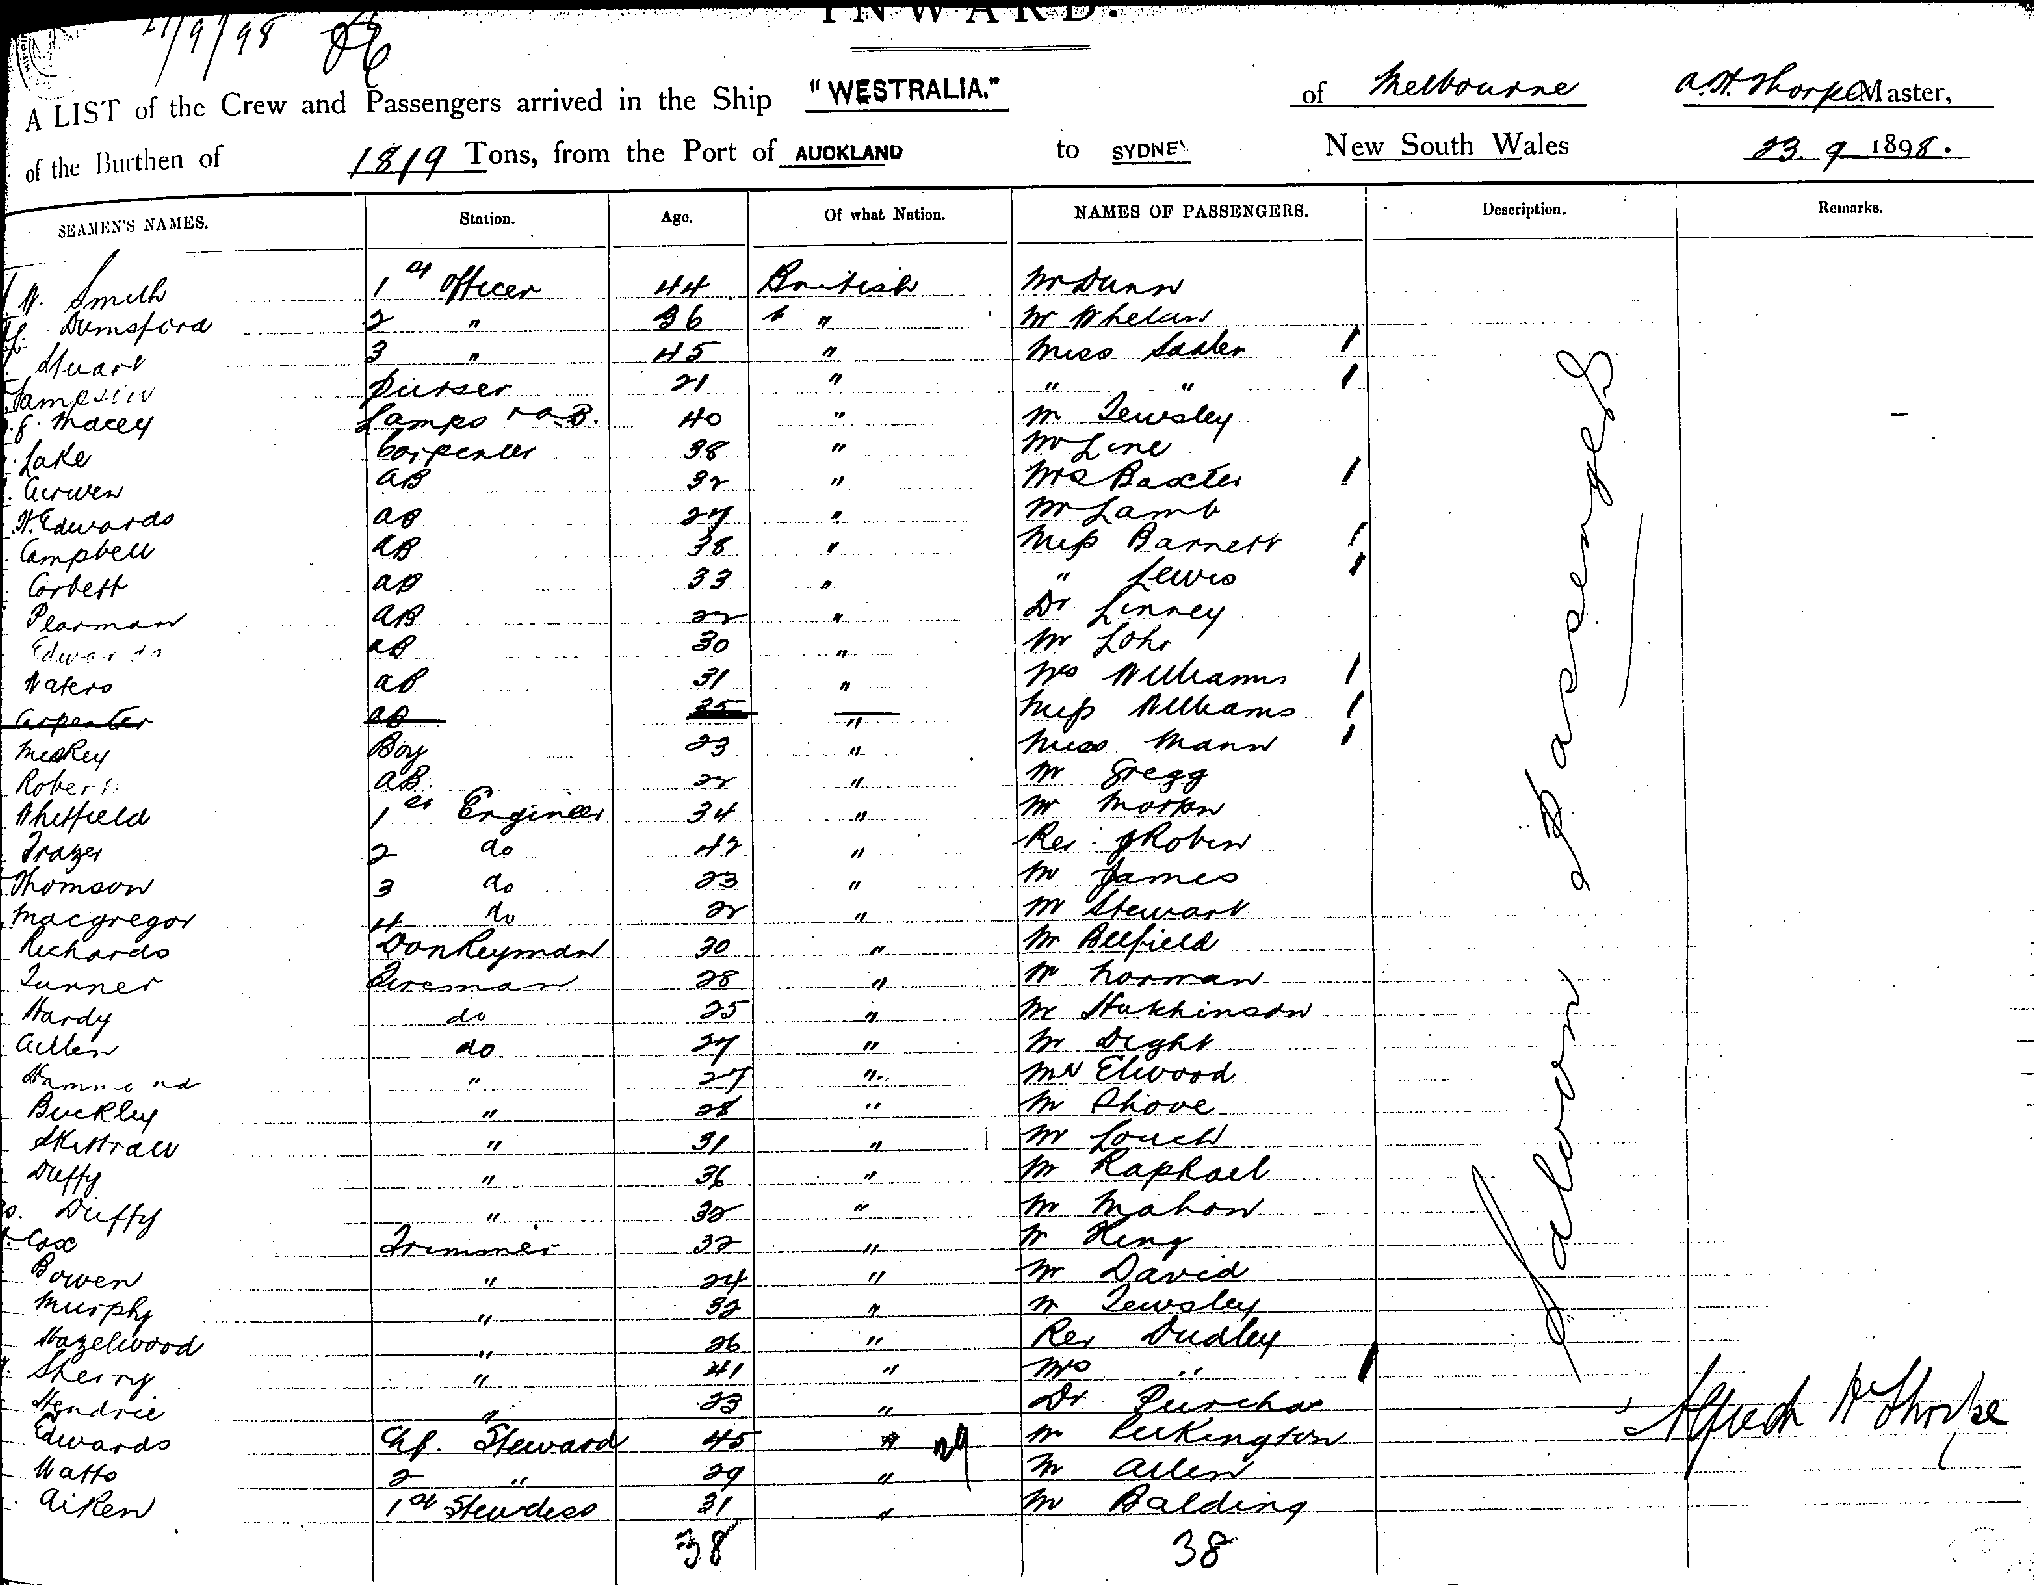 INWARD.
21/9/98
A LIST of the Crew and Passengers arrived in the Ship "WESTRALIA." of Melbourne A. H. Thorpe Master,
of the Burthen of 1819 Tons, from the Port of AUCKLAND to SYDNEY New South Wales 23. 9 1898.
SEAMEN'S NAMES. Station. Age. Of what Nation. NAMES OF PASSENGERS. Description. Remarks.
W. Smith 1st Officer 44 British Mr Dunn
Dumsford 2 " 36 " Mr Whelan
Stuart 3 " 45 " Miss Sadler 1
Sampson purser 21 " " " 1
Macey Lamps & AB. 40 " Mr Tewsley
Lake Carpenter 38 " Mr Line
AB 32 " Mrs Baxter 1
W. Edwards AB 27 " Mr Lamb
Campbell AB 38 " Miss Barnett 1
Corbett AB 33 " " Lewis 1
Pearman AB 22 " Dr Linney
Edwards AB 30 " Mr Lohr
Waters AB 31 " Mrs Williams 1
Carpenter AB 25 " Miss Williams 1
Mickey Boy 23 " Miss Mann 1
Robert AB. 22 " Mr Gregg
Whitfield 1st Engineer 34 " Mr Morton
Frazer 2 do 42 " Rev. Robin
Thomson 3 do 23 " Mr James
Macgregor 4 do 22 " Mr Stewart
Richards Donkeyman 30 " Mr Belfield
Turner Fireman 28 " Mr Norman
Hardy do 25 " Mr Hutchinson
Allen do 27 " Mr Dight
Hammond " 27 " Mr Elwood
Buckley " 28 " Mr Phove
Skittrall " 31 " Mr Louch
Duffy " 36 " Mr Raphael
Duffy " 32 " Mr Mahon
Cox Trimmer 32 " Mr King
Bowen " 24 " Mr David
Murphy " 32 " Mr Tewsley
Hazelwood " 26 " Rev Dudley
Sherry " 41 " Mrs " 1
Hendrie " 23 " Dr Purchas
Edwards Chf. Steward 45 " 29 Mr Pilkington
Watts 2 " 29 " Mr Allen
Aiken 1st Stewdess 31 " Mr Balding
38 38
Saloon Passengers
Alfred H Thorpe